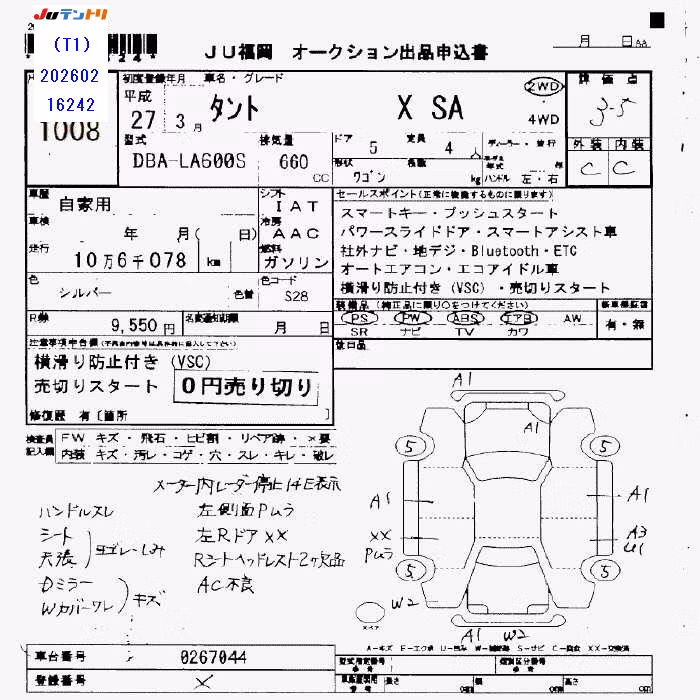 JUテントリ
(T1)
202602
16242
JU福岡 オークション出品申込書
月 日 AA
1008
初度登録年月 車名・グレード
評価点
平成 27 3月 タント X SA 2WD 4WD
3.5
外装 内装
C C
型式 排気量 ドア 定員
DBA-LA600S 660 CC 5 4人
形状 ワゴン kg ハンドル 左・右
車歴 自家用 シフト IAT
車検 年 月( 日) 冷房 AAC
走行 10万6千078 km 燃料 ガソリン
色 シルバー 色替 色コード S28
R券 9,550円 名変通知期限 月 日
セールスポイント(正常に機能するものに限ります)
スマートキー・プッシュスタート
パワースライドドア・スマートアシスト車
社外ナビ・地デジ・Bluetooth・ETC
オートエアコン・エコアイドル車
横滑り防止付き(VSC)・売切りスタート
装備品(純正品に限り○をつけてください)
新車保証書
PS PW ABS エアB AW 有・無
SR ナビ TV カワ
後日品
注意事項申告欄
横滑り防止付き(VSC)
売切りスタート 0円売り切り
修復歴 有〔箇所 〕
検査員 FW キズ・飛石・ヒビ割・リペア跡・×要
記入欄 内装 キズ・汚レ・コゲ・穴・スレ・キレ・破レ
メーター内レーダー停止14E表示
ハンドルスレ 左側面Pムラ
シート 天張 ヨゴレ・しみ
左Rドア××
Rシートヘッドレスト2ヶ欠品
Dミラー Wカバーワレ キズ
AC不良
A1
A1
5 5
A1 A1
XX Pムラ
A3 U1
5 5
W2
A1 W2
A-キズ E-エクボ U-凹み W-補修跡 S-サビ C-腐食 XX-交換済
車台番号 0267044
登録番号 ×
型式指定番号 類別区分番号
長さ cm 幅 cm 高さ cm